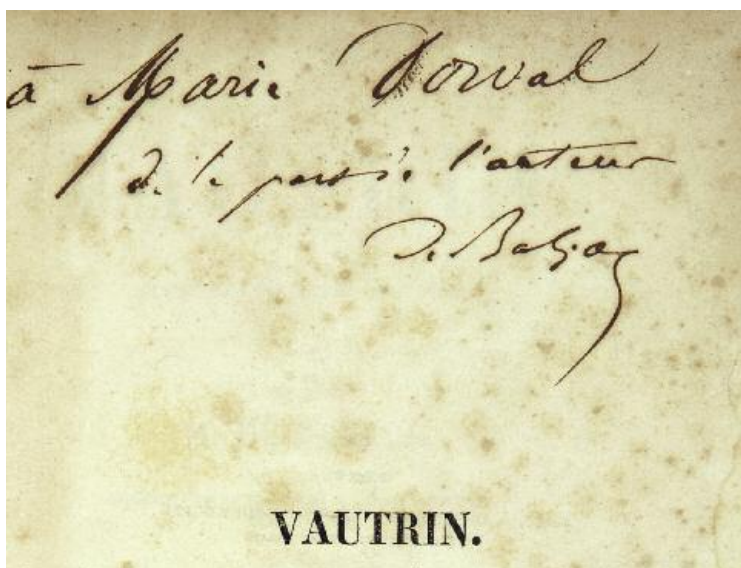 à Marie Dorval
de la part de l'auteur
De Balzac
VAUTRIN.